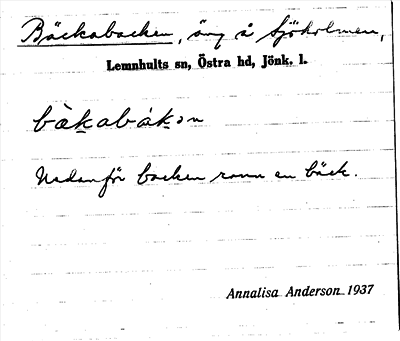 Bäckabacken, äng å Sjöholmen,
Lemnhults sn, Östra hd, Jönk. l.
bæ̀kabàkɔn
Nedanför backen rann en bäck.
Annalisa Anderson 1937